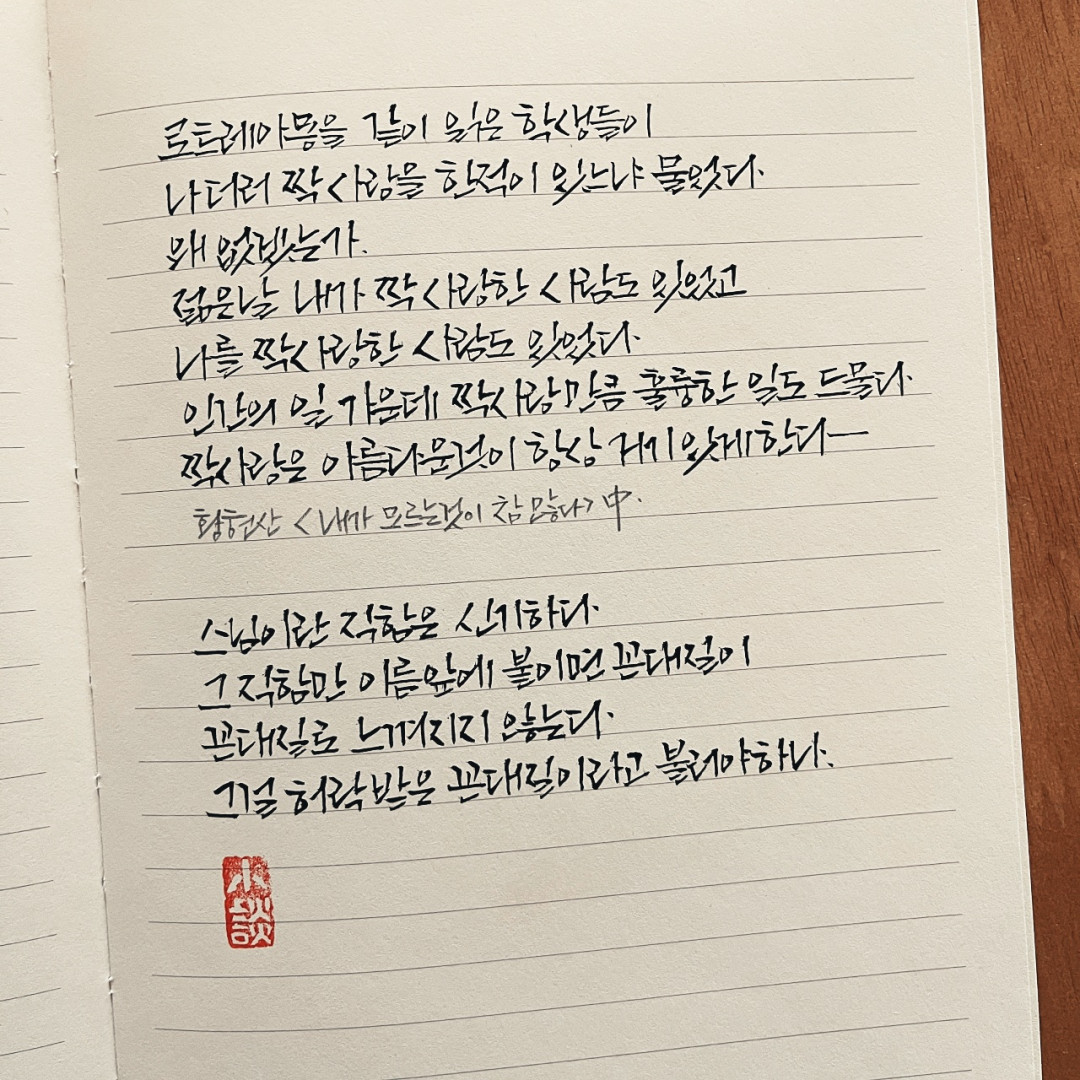 로트레아몽을 같이 읽은 학생들이
나더러 짝사랑을 한적이 있느냐 물었다.
왜 없겠는가.
젊은날 내가 짝사랑한 사람도 있었고
나를 짝사랑한 사람도 있었다.
인간의 일 가운데 짝사랑만큼 훌륭한 일도 드물다.
짝사랑은 아름다운것이 항상 거기 있게한다—
황현산 <내가 모르는것이 참 많다> 中.
스님이란 직함은 신기하다.
그 직함만 이름앞에 붙이면 꼰대질이
꼰대질로 느껴지지 않는다.
그걸 허락받은 꼰대질이라고 불러야하나.
小談